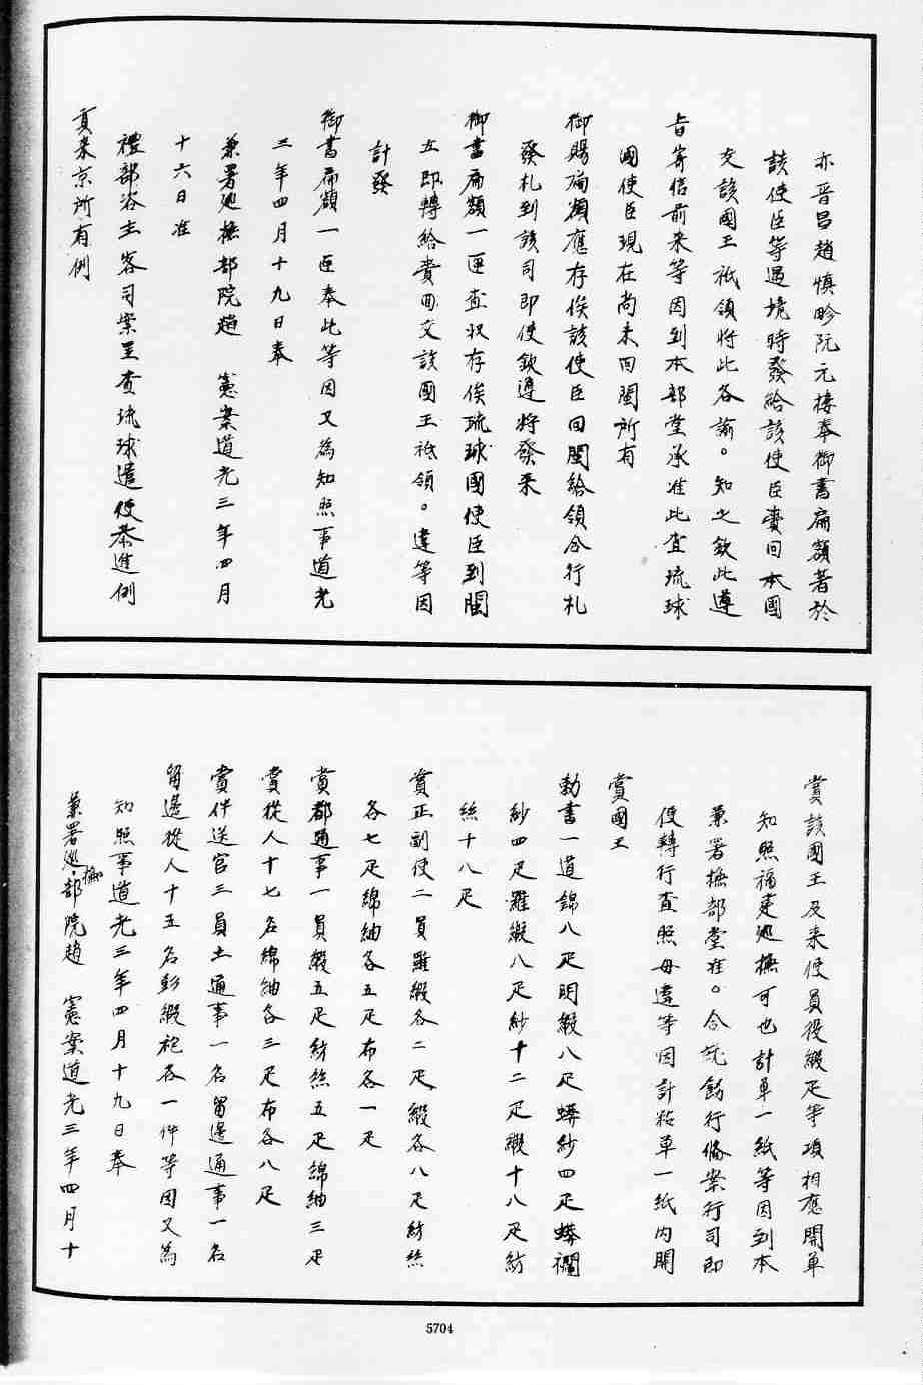 亦晋昌趙慎畛阮元接奉御書扁額著於
該使臣等過境時發給該使臣賷回本國
交該國王祗領將此各諭。知之欽此遵
旨寄信前来等因到本部堂承准此查琉球
國使臣現在尚未回閩所有
御賜扁額應存俟該使臣回閩給領合行札
發札到該司即便欽遵將發来
御書扁額一匣查收存俟琉球國使臣到閩
立即轉給賷回交該國王祗領。違等因
計發
御書扁額一匣奉此等因又為知照事道光
三年四月十九日奉
兼署廵撫部院趙 憲案道光三年四月
十六日准
禮部咨主客司案呈查琉球遣使恭進例
貢来京所有例
賞該國王及来使員役緞疋等項相應開單
知照福建廵撫可也計單一紙等因到本
兼署撫部堂准。合就飭行俻案行司即
便轉行查照毋違等因計粘單一紙内開
賞國王
勅書一道錦八疋閃緞八疋蟒紗四疋蟒襴
紗四疋羅緞八疋紗十二疋緞十八疋紡
絲十八疋
賞正副使二員羅緞各二疋緞各八疋紡絲
各七疋綿紬各五疋布各一疋
賞都通事一員緞五疋紡絲五疋綿紬三疋
賞從人十七名綿紬各三疋布各八疋
賞伴送官三員土通事一名留邊通事一名
留邊從人十五名彭緞袍各一件等因又為
知照事道光三年四月十九日奉
兼署廵撫部院趙 憲案道光三年四月十
5704